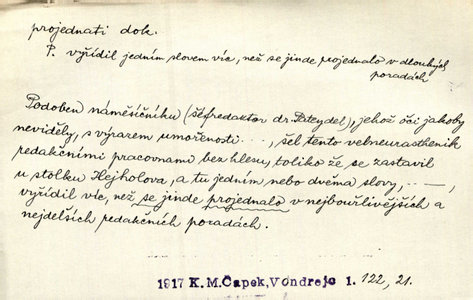 projednati dok.
P. vyřídil jedním slovem víc, než se jinde projednalo v dlouhých
poradách
Podoben náměsíčníku (šéfredaktor dr. Pteydel), jehož oči jakoby
neviděly, s výrazem umořenosti ..., šel tento velneurasthenik
redakčními pracovnami bez hlesu, toliko že se zastavil
u stolku Hejholova, a tu jedním nebo dvěma slovy, . — ,
vyřídil víc, než se jinde projednalo v nejbouřlivějších a
nejdelších redakčních poradách.
1917 K. M. Čapek, Vondrejc 1. 122, 21.